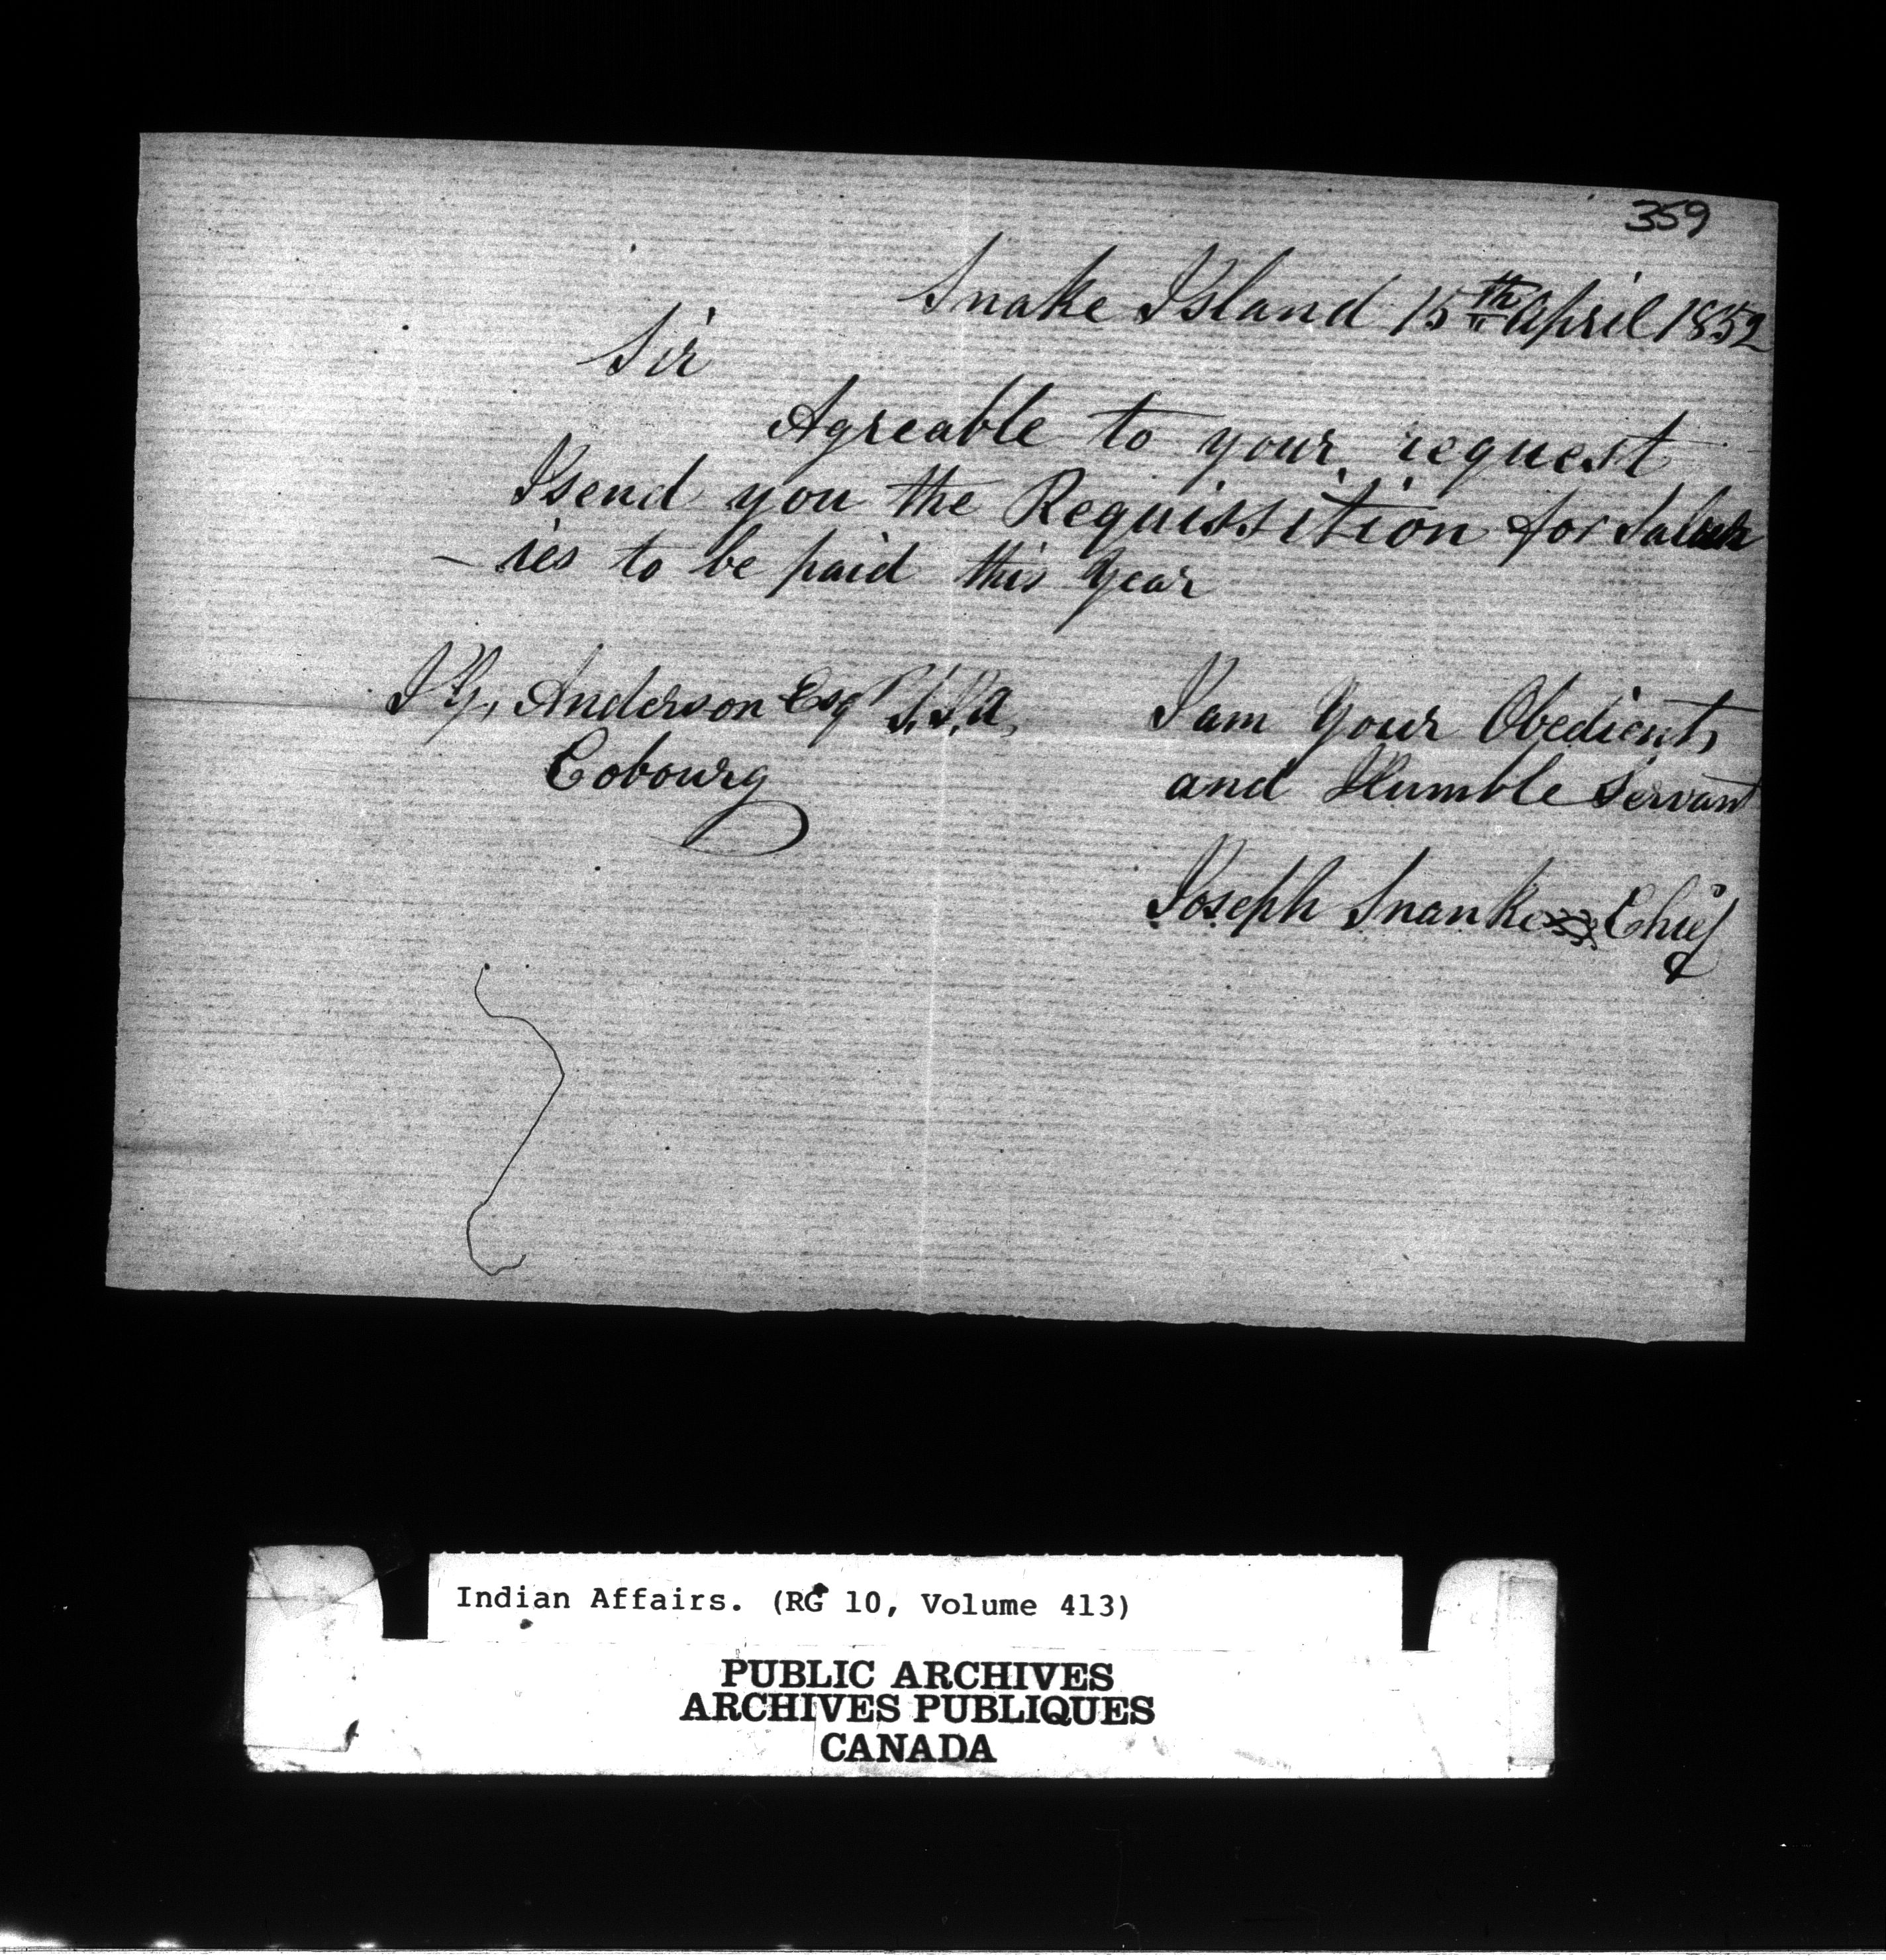 359
Snake Island 15th April 1852
Sir
Agreable to your request
I send you the Requissition for Salar
– ies to be paid this Year
T G, Anderson Esqr V.S.I.A,
Cobourg
I am Your Obedient,
and Humble Servant
Joseph Snanke Chief
Indian Affairs. (RG 10, Volume 413)
PUBLIC ARCHIVES
ARCHIVES PUBLIQUES
CANADA